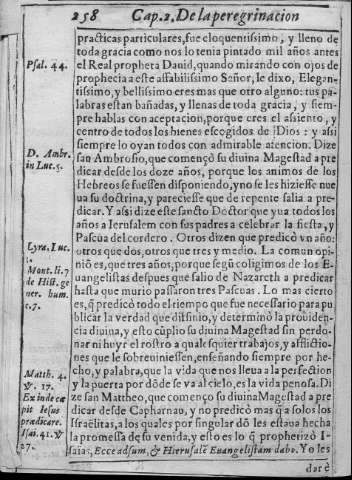 258 Cap. 2. De la peregrinacion
practicas particulares, fue eloquentissimo, y lleno de
toda gracia como nos lo tenia pintado mil años antes
el Real propheta Dauid, quando mirando con ojos de
prophecia a este affabilissimo Señor, le dixo, Elegan-
tissimo, y bellissimo eres mas que otro alguno: tus pa-
labras estan bañadas, y llenas de toda gracia, y siem-
pre hablas con acceptacion, porque eres el assiento, y
centro de todos los bienes escogidos de Dios: y assi
siempre lo oyan todos con admirable atencion. Dize
san Ambrosio, que començò su diuina Magestad a pre
dicar desde los doze años, porque los animos de los
Hebreos se fuessen disponiendo, y no se les hiziesse nue
ua su doctrina, y pareciesse que de repente salia a pre-
dicar. Y assi dize este sancto Doctor que yua todos los
años a Ierusalem con sus padres a celebrar la fiesta, y
Pascua del cordero. Otros dizen que predicò vn año:
otros que dos, otros que tres y medio. La comun opi-
niõ es, que tres años, porque segũ coligimos de los E-
uangelistas despues que salio de Nazareth a predicar
hasta que murio passaron tres Pascuas. Lo mas cierto
es, q̃ predicò todo el tiempo que fue necessario para pu
blicar la verdad que diffinio, y determinò la prouiden-
cia diuina, y esto cũplio su diuina Magestad sin perdo-
nar ni huyr el rostro a qualesquier trabajos, y afflictio-
nes que le sobreuiniessen, enseñando siempre por he-
cho, y palabra, que la vida que nos lleua a la perfection
y la puerta por dõde se va al cielo, es la vida penosa. Di
ze san Mattheo, que començo su diuina Magestad a pre
dicar desde Capharnau, y no predicò mas q̃ a solos los
Israëlitas, a los quales por singular dõ les estaua hecha
la promessa de su venida, y esto es lo q̃ propherizò I-
saias, Ecce adsum, & Hierusalẽ Euangelistam dabo. Yo les
darè
Psal. 44.
D. Ambr.
in Luc. 5.
Lyra. Luc.
Mont. li. 7
de Hist. ge
ner. hum.
c. 7.
Matth. 4.
& 17.
Ex inde cæ
pit Iesus
prædicare.
Isai. 41. &
27.